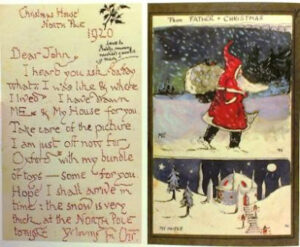 Christmas House
NORTH POLE
1920
Love to
Dear John,
I heard you ask daddy
what I was like & where
I lived. I have drawn
ME & My House for you
Take care of the picture
I am just off now for
Oxford with my bundle
of toys — some for you.
Hope I shall arrive in
time: the snow is very
thick at the NORTH POLE
tonight. Yr loving Fr. Chr.
From FATHER CHRISTMAS
ME
MY HOUSE